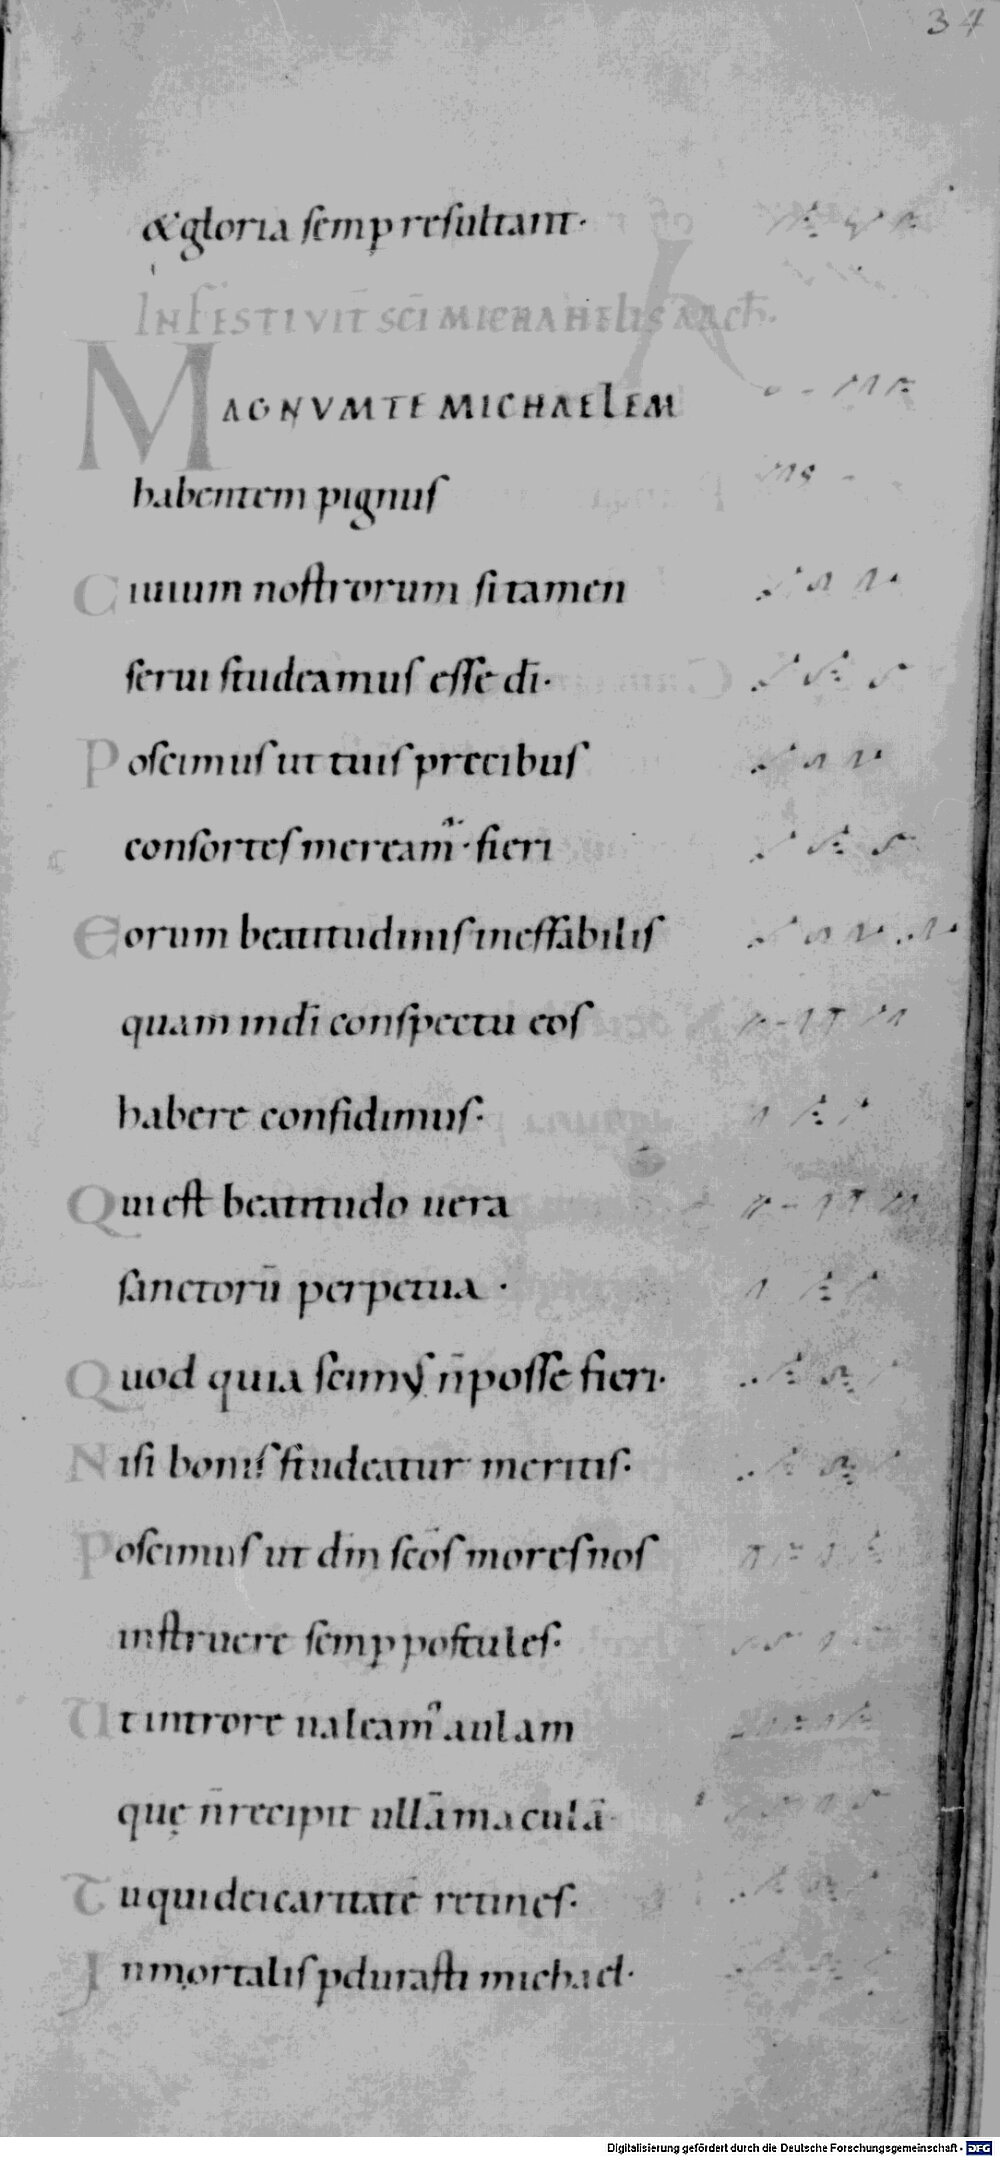 34
&gloria semp resultant·
IN FESTIVIT̄ SC̄I MICHAHELIS ARCH̄·
MAGNVM TE MICHAELEM
habentem pignus
Ciuium nostrorum si tamen
serui studeamus esse dī·
Poscimus ut tuis precibus
consortes meream̄· fieri
Eorum beatitudinis ineffabilis
quam in dī conspectu eos
habere confidimus·
Qui est beatitudo uera
sanctorū perpetua ·
Quod quia scimus n̄ posse fieri·
Nisi bonis studeatur meritis·
Poscimus ut dm̄ sc̄os mores nos
instruere semp postules·
Ut introre ualeam aulam
quę n̄ recipit ullā maculā·
Tu qui dei caritatē retines·
Inmortalis pdurasti michael·
Digitalisierung gefördert durch die Deutsche Forschungsgemeinschaft - DFG